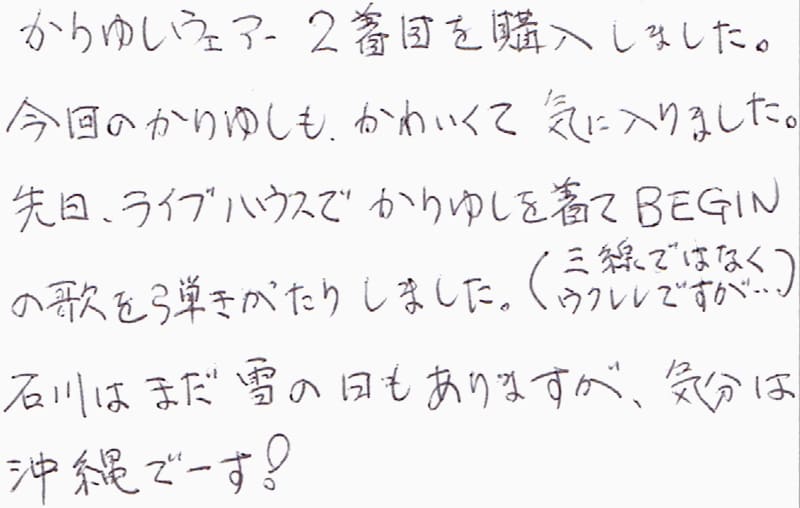 かりゆしウェアー 2着目を購入しました。
今回のかりゆしも、かわいくて 気に入りました。
先日、ライブハウスで かりゆしを着て BEGIN
の歌を弾きがたりしました。(三線ではなく
ウクレレですが…)
石川はまだ雪の日もありますが、気分は
沖縄でーす!